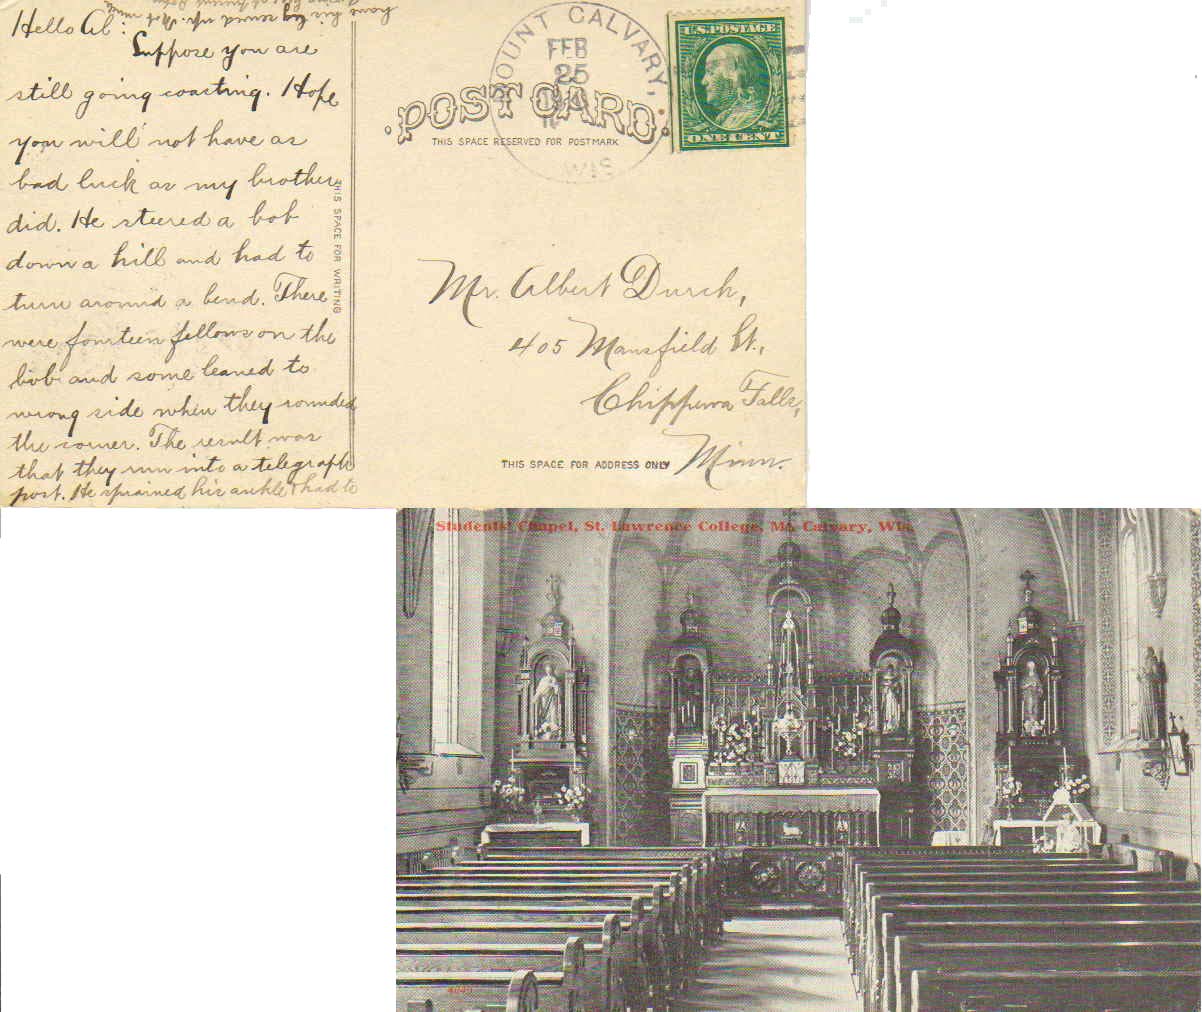 Hello Al:
Suppose you are
still going coasting. Hope
you will not have as
bad luck as my brother
did. He steered a bob
down a hill and had to
turn around a bend. There
were fourteen fellows on the
bob and some leaned to
wrong side when they rounded
the corner. The result was
that they run into a telegraph
post. He sprained his ankle & had to
have his leg sewed up.
THIS SPACE FOR WRITING
MOUNT CALVARY,
FEB
25
WIS
U.S. POSTAGE
ONE CENT
POST CARD
THIS SPACE RESERVED FOR POSTMARK
Mr. Albert Durch,
405 Mansfield St.,
Chippewa Falls,
Minn.
THIS SPACE FOR ADDRESS ONLY
Students' Chapel, St. Lawrence College, Mt. Calvary, Wis.